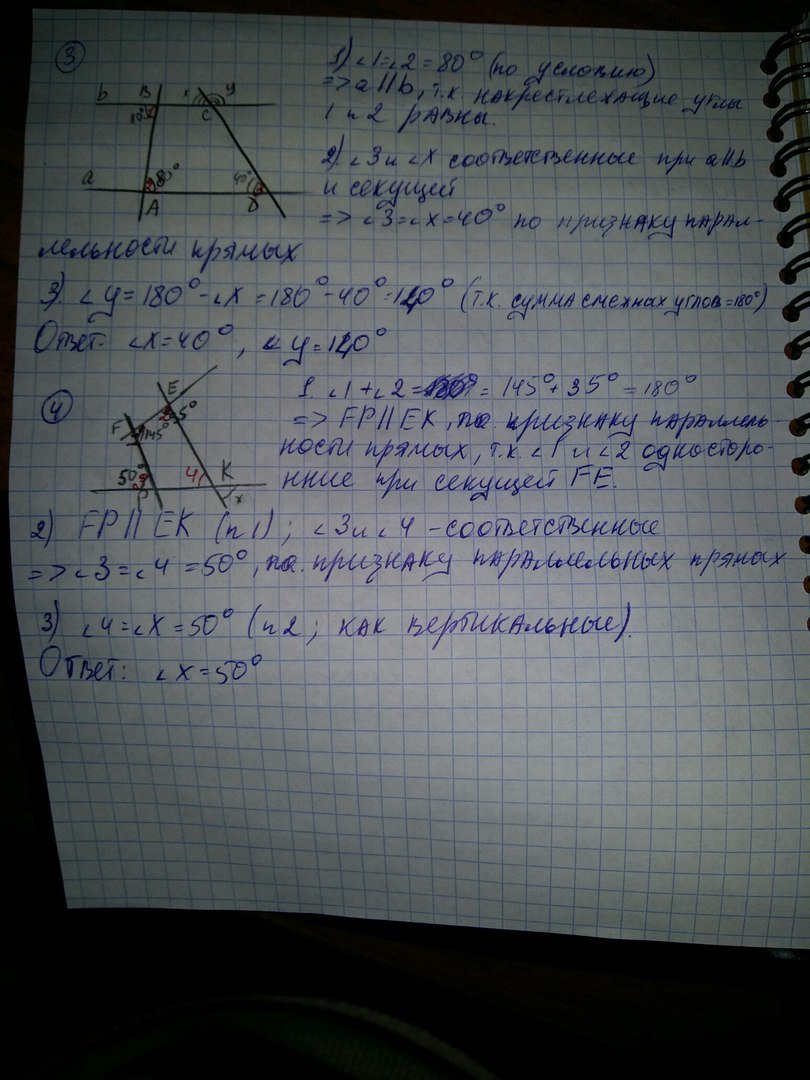 3
1) ∠1=∠2=80° (по условию)
=> a||b, т.к. накрестлежащие углы
1 и 2 равны.
b B x y
80° C
a 80° 40°
A D
2) ∠3 и ∠x соответственные при a||b
и секущей
=> ∠3=∠x=40° по признаку парал-
лельности прямых
3) ∠y=180°-∠x=180°-40°=140° (т.к. сумма смежнах углов=180°)
Ответ: ∠x=40°, ∠y=140°
4
1. ∠1+∠2= = 145°+35°=180°
=> FP||EK, по признаку параллель-
ности прямых, т.к. ∠1 и ∠2 односторо-
нние при секущей FE.
E
F 145° 35°
50° 3 4 K
P x
2) FP||EK (п1); ∠3 и ∠4 -соответственные
=> ∠3=∠4=50°, по признаку параллельных прямах
3) ∠4=∠x=50° (п2; как вертикальные).
Ответ: ∠x=50°